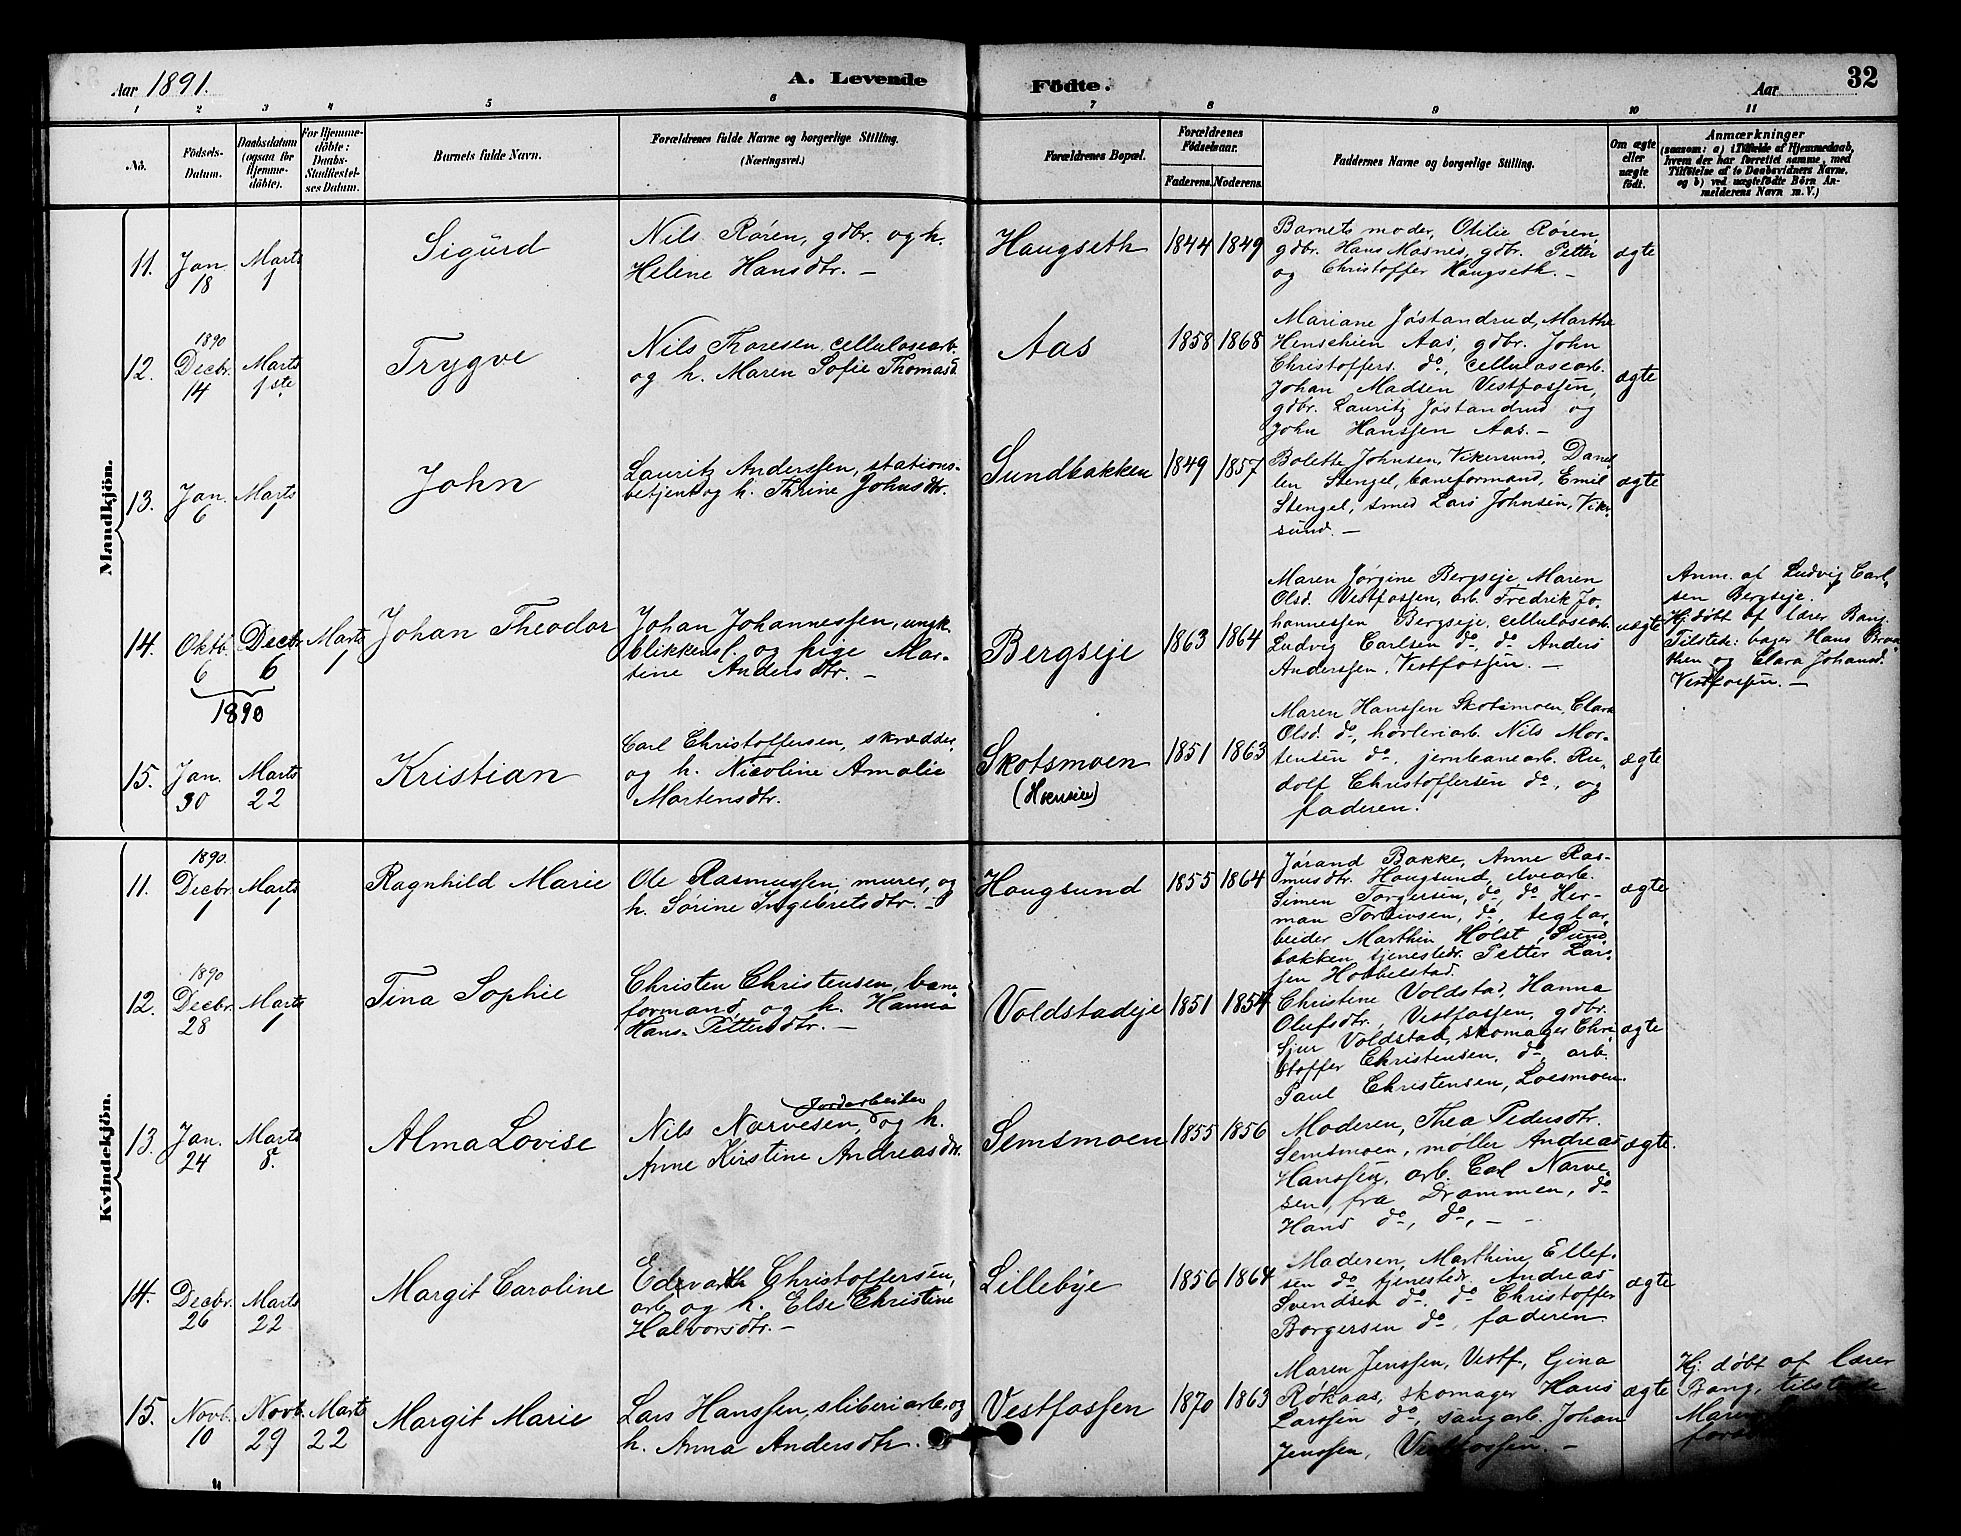 Aar 1891.
A. Levende
Födte.
Aar
32
1 2 3 4 5 6 7 8 9 10 11
No.
Födsels-
Datum.
Daabsdatum
(ogsaa för
Hjemme-
döbte).
For Hjemme-
döbte:
Daabs-
Stadfæstel-
ses Datum.
Barnets fulde Navn.
Forældrenes fulde Navne og borgerlige Stilling.
(Næringsvei.)
Forældrenes Bopæl.
Forældrenes
Födselsaar.
Faderens. Moderens.
Faddernes Navne og borgerlige Stilling.
Om ægte
eller
uægte
födt.
Anmærkninger
(saasom: a) i Tilfælde af Hjemmedaab,
hvem der har forrettet samme, med
Tilföielse af to Daabsvidners Navne,
og b) ved uægtefödte Börn An-
melderens Navn m. V.)
Mandkjön.
11.
Jan.
18
Marts
1
Sigurd
Nils Røren, gdbr. og h.
Helene Hansdtr. —
Haugseth
1844 1849
Barnets moder, Otilie Røren,
gdbr. Hans Masnes, gdbr. Petter
og Christoffer Haugseth. —
ægte
12.
1890
Decbr.
14
Marts
1ste
Trygve
Nils Thoresen, cellulosearb.
og h. Maren Sofie Thomasd.
Aas
1858 1868
Mariane Jøstandrud, Marthe
Henschien Aas, gdbr. John
Christoffers. do, cellulosearb.
Johan Madsen Vestfossen,
gdbr. Lauritz Jøstandrud og
John Hanssen Aas. —
ægte
13.
Jan.
6
Marts
1
John
Lauritz Anderssen, stations-
betjent og h. Thrine Johnsdtr.
Sundbakken
1849 1857
Bolette Johnsen, Vikersund, Danel
len Stengel, baneformand, Emil
Stengel, smed Lars Johnsen, Viker-
sund. —
ægte
14.
Oktb.
6
Decbr.
6
1890
Marts
1
Johan Theodor
Johan Johannessen, ungk.
blikkensl. og pige Mar-
tine Andersdtr. —
Bergseje
1863 1864
Maren Jørgine Bergseje, Maren
Olsd. Vestfossen, arb. Fredrik Jo-
hannessen Bergseje, cellulosearb.
Ludvig Carlsen do, do Anders
Anderssen, Vestfossen. —
uægte
Anm. af Ludvig Carl-
sen Bergseje.
Hj.døbt af lærer Bang.
Tilstede: bager Hans Braa-
then og Clara Johansd.
Vestfossen. —
15.
Jan.
30
Marts
22
Kristian
Carl Christoffersen, skrædder,
og h. Nicoline Amalie
Martensdtr.
Skotsmoen
1851 1863
Maren Hanssen Skotsmoen, Clara
Olsd. do, hørleriarb. Nils Mor-
tensen do, jernbanearb. Ru-
dolf Christoffersen do, og
faderen.
ægte
Kvindekjön.
11.
1890.
Decbr.
1
Marts
1
Ragnhild Marie
Ole Rasmussen, murer, og
h. Sørine Ingebretsdtr. —
Haugsund
1855 1864
Jørand Bakke, Anne Ras-
musdtr. Haugsund, elvearb.
Simen Torgersen, do, do Her-
man Torsivsen, do, teglar-
beider Marthin Holst, Sund-
bakken, tjenestedr. Petter Lar-
sen Hobbelstad.
ægte
12.
1890
Decbr.
28
Marts
1
Tina Sophie
Christen Christensen, bane-
formand, og h. Hanna
Hans-Pettersdtr. —
Voldstadeje
1851 1854
Christine Voldstad, Hanna
Olufsdtr. Vestfossen, gdbr.
Sjur Voldstad, skomager Chri-
stoffer Christensen, do, arb.
Paul Christensen, Loesmoen.
ægte
13.
Jan.
24
Marts
8.
Alma Lovise
Jordarbeider
Nils Narvesen, og h.
Anne Kirstine Andreasdtr.
Semsmoen
1855 1856
Moderen, Thea Pedersdtr.
Semsmoen, møller Andreas
Hanssen, arb. Carl Narve-
sen, fra Drammen, do
Hans do, do, —
ægte.
14.
Decbr.
26
Marts
22
Margit Caroline
Edvarth Christoffersen,
arb. og h. Else Christine
Halvorsdtr. —
Lillebye
1856 1864
Moderen, Marthine Ellef-
sen do, tjenestedr. Andreas
Svendsen do, do Christoffer
Borgersen do, faderen
ægte
15.
Novb.
10
Novb.
29
Marts
22
Margit Marie
Lars Hanssen, sliberiarb., og
h. Anna Andersdtr.
Vestfossen
1870 1863
Maren Jenssen, Vestf., Gina
Røkaas, skomager Hans
Larssen do, saugarb. Johan
Jenssen, Vestfossen. —
ægte
Hj. døbt af lærer
Bang, tilstede
Maren